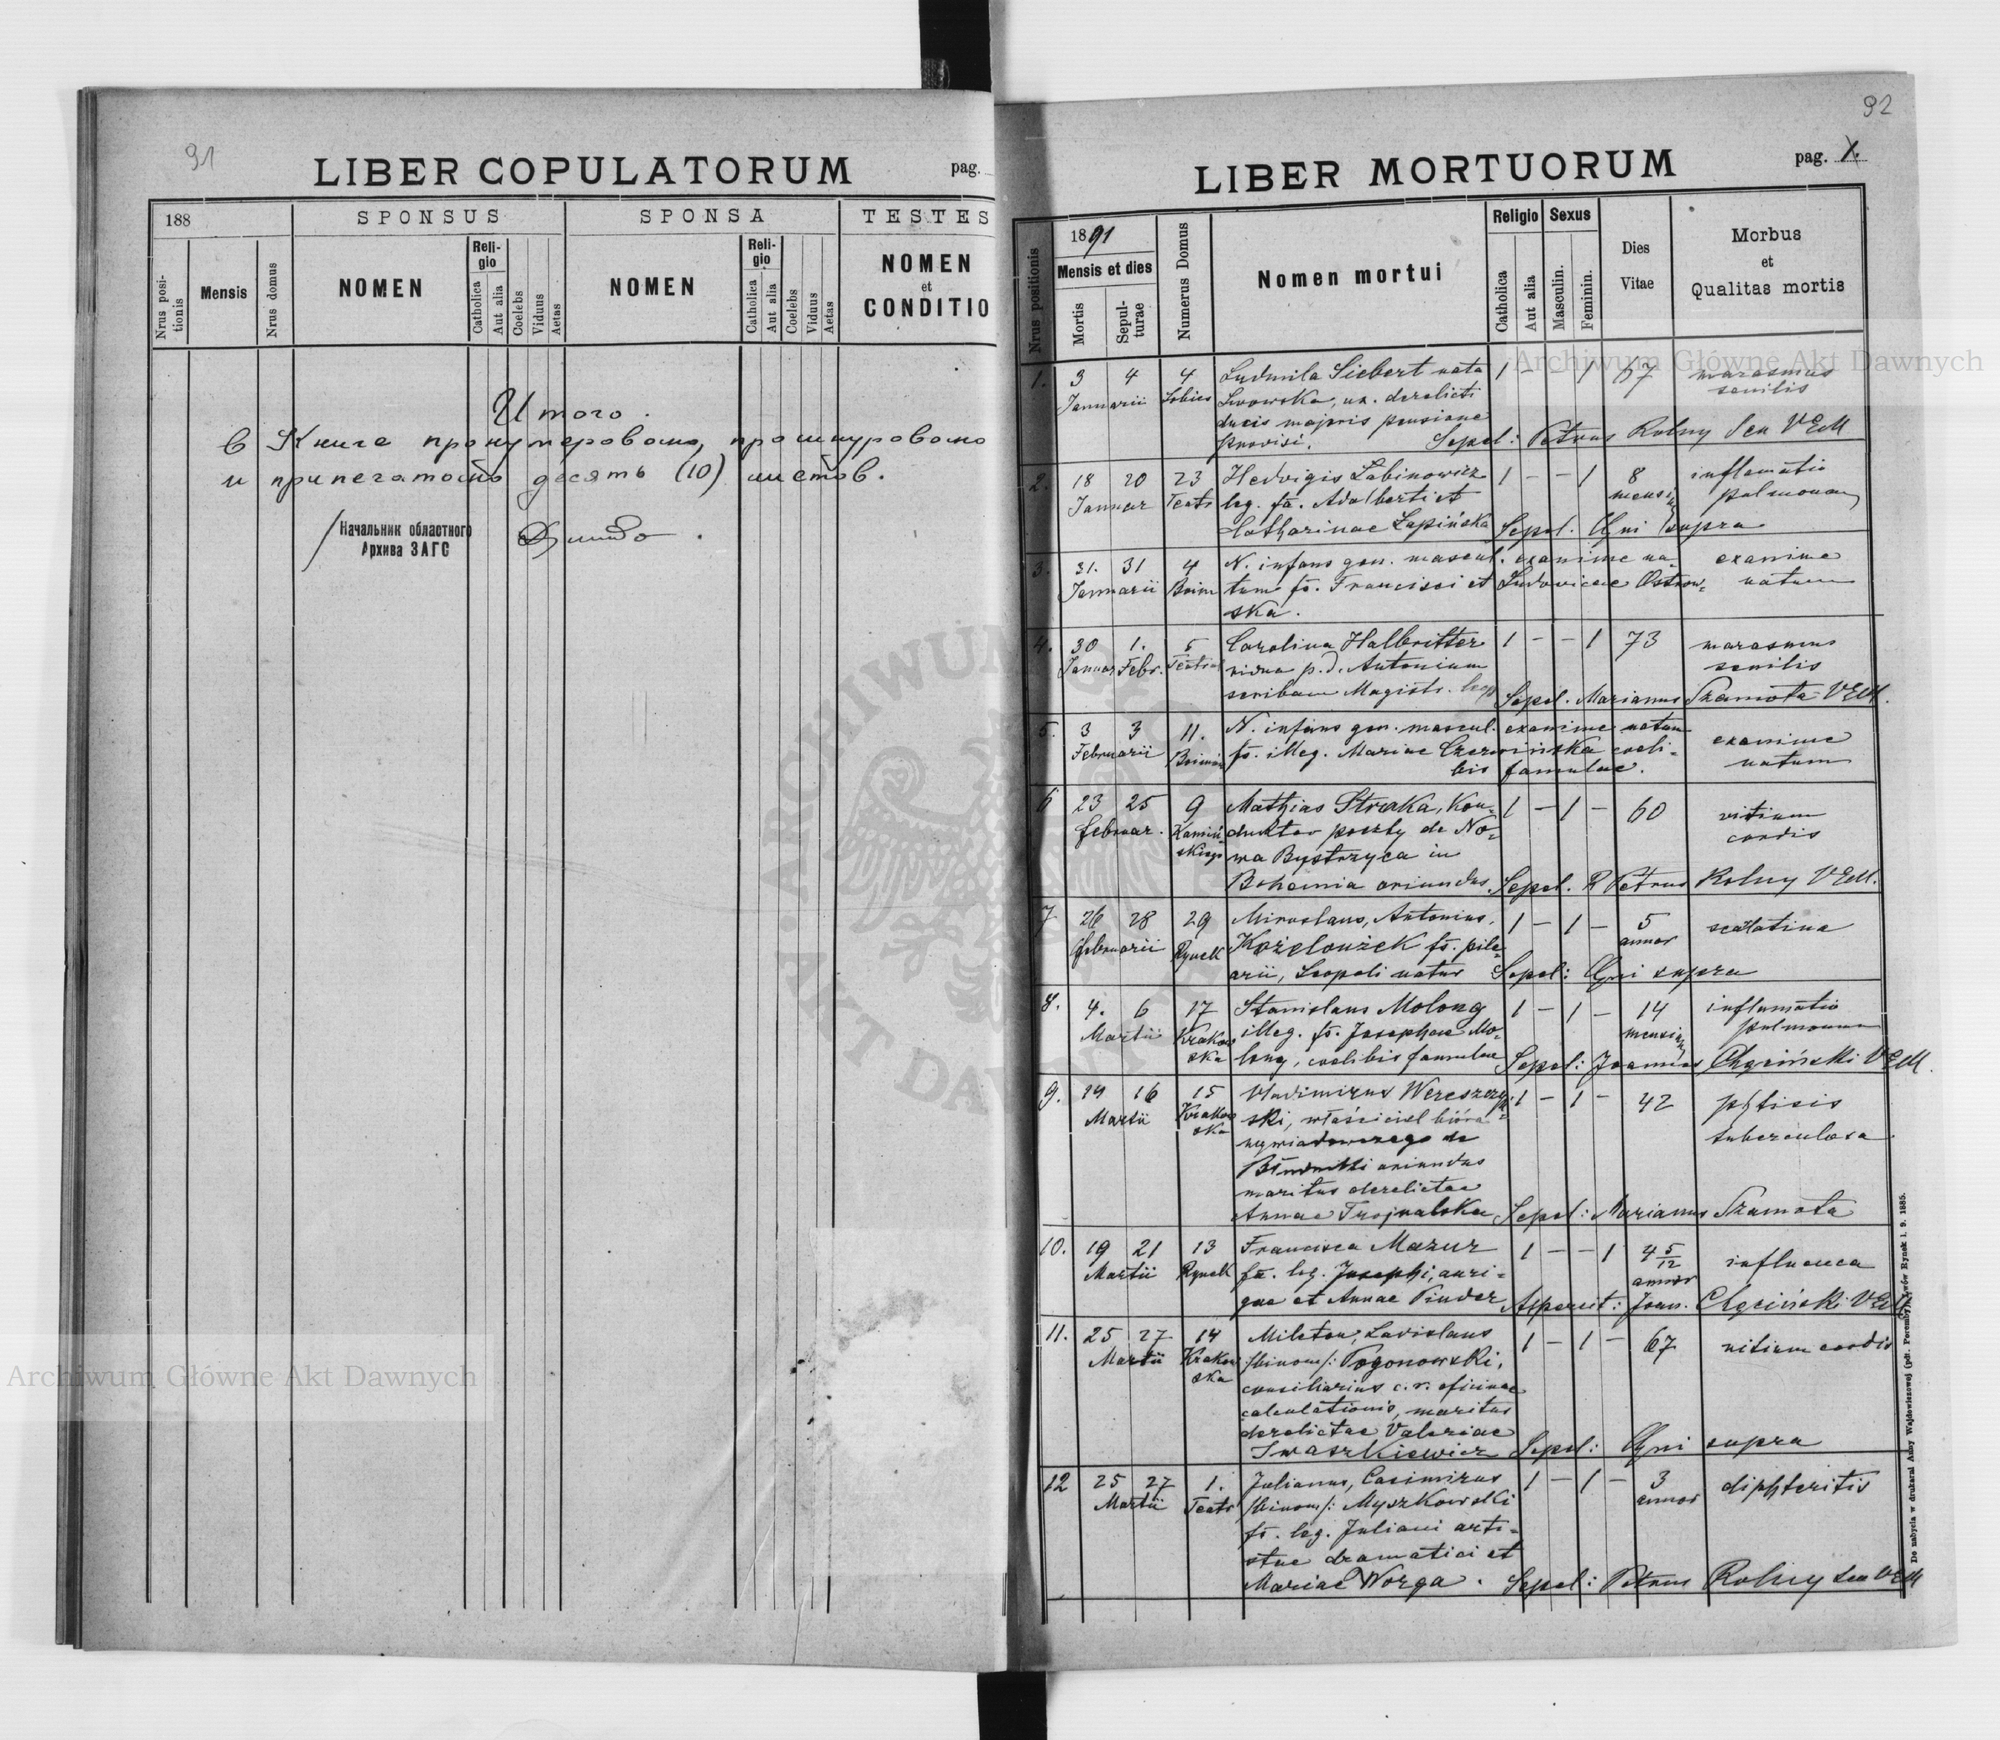 91
LIBER COPULATORUM
pag.
188
SPONSUS
SPONSA
TESTES
Nrus positionis
Mensis
Nrus domus
NOMEN
Religio
Catholica
Aut alia
Coelebs
Viduus
Aetas
NOMEN
Religio
Catholica
Aut alia
Coelebs
Viduus
Aetas
NOMEN
et
CONDITIO
Итого.
В Книге пронумеровано, прошнуровано
и припечатано десять (10) листов.
Начальник областного
Архива ЗАГС
92
LIBER MORTUORUM
pag. X.
Nrus positionis
1891
Mensis et dies
Mortis
Sepulturae
Numerus Domus
Nomen mortui
Religio
Catholica
Aut alia
Sexus
Masculin.
Feminin.
Dies
Vitae
Morbus
et
Qualitas mortis
1. 3 4 4 Ludmila Siebert nata 1 - - 1 67 marasmus
Januarii Lwowska, ux. derelicti senilis
ducis majoris pensione
provisi. Sepel: Petrus Rolny Scu VEM
2. 18 20 23 Hedvigis Labinowicz 1 - - 1 8 inflamatio
Januar Teatr leg. fa. Adalberti et mensium pulmonum
Catharinae Łapińska Sepel. Qui supra
3. 31. 31 4 N. infans gen. mascul. exanime na- exanime
Januarii Boim tum fs. Francisci et Ludovicae Ostrow- natum
ska.
4. 30 1. 5 Carolina Halbritter 1 - - 1 73 marasmus
Januar Febr. Teatral vidua p. d. Antonium senilis
scribam Magistr. Leop Sepel. Marianus Szamota VEM.
5. 3 3 11. N. infans gen. mascul. exanime natum exanime
Februarii Boimów fs. illeg. Mariae Czerwińska coeli- natum
bis famulae.
6 23 25 9 Mathias Straka, Kon- 1 - 1 - 60 vitium
Februar. Kamińskiego duktor poczty de No- cordis
wa Bystrzyca in
Bohemia oriundus. Sepel. R Petrus Rolny VEM.
7 26 28 29 Miroslaus, Antonius 1 - 1 - 5 scarlatina
Februarii Rynek Kożeloużek fs. pile- annor
arii, Leopoli natus Sepel: Qui supra
8. 4. 6 17 Stanislaus Molong 1 - 1 - 14 inflamatio
Martii Krakowska illeg. fs. Josephae Mo- mensium pulmonum
long, coelibis famulae Sepel: Joannes Chęciński VEM.
9. 14 16 15 Vladimirus Wereszczyń- 1 - 1 - 42 phtisis
Martii Krakowska ski, właściciel bióra tuberculosa
wywiadowczego de
Błudniki oriundus
maritus derelictae
Annae Trojnalska Sepel: Marianus Szamota
10. 19 21 13 Francisca Mazur 1 - - 1 4 5/12 influenca
Martii Rynek fa. leg. Josephi, auri- annor
gae et Annae Pinder Aspersit: Joan. Chęciński VEM
11. 25 27 14 Mileton, Ladislaus 1 - 1 - 67 vitium cordis
Martii Krakowska /binom/: Pogonowski,
consiliarius c. r. oficinae
calculationis, maritus
derelictae Valeriae
Iwaszkiewicz Sepel: Qui supra
12 25 27 1. Julianus, Casimirus 1 - 1 - 3 diphteritis
Martii Teatr /binom/: Myszkowski annor
fs. leg. Juliani arti-
stae dramatici et
Mariae Worga. Sepel: Petrus Rolny Scu VEM
Do nabycia w drukarni Anny Wajdowiczowej (pdt. Poremby) Lwów Rynek l. 9. 1885.
Archiwum Główne Akt Dawnych
Archiwum Główne Akt Dawnych
ARCHIWUM GŁÓWNE AKT DAWNYCH